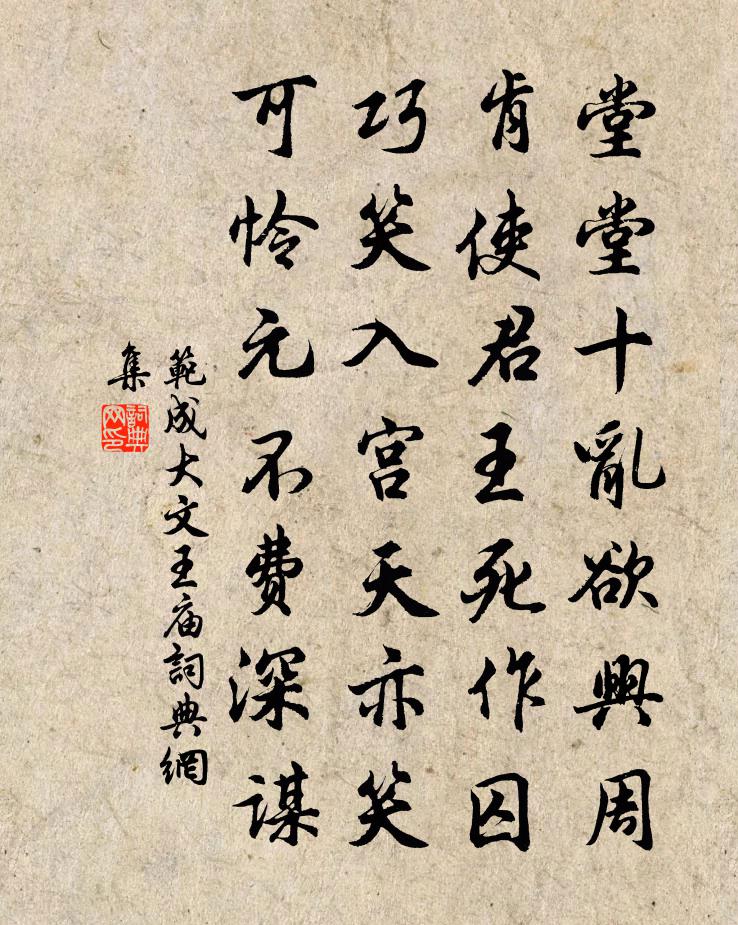 堂堂十亂欲興周
肯使君王死作囚
巧笑入宮天亦笑
可怜元不費深謀
範成大文王庙詞典網
集
詞典
网印